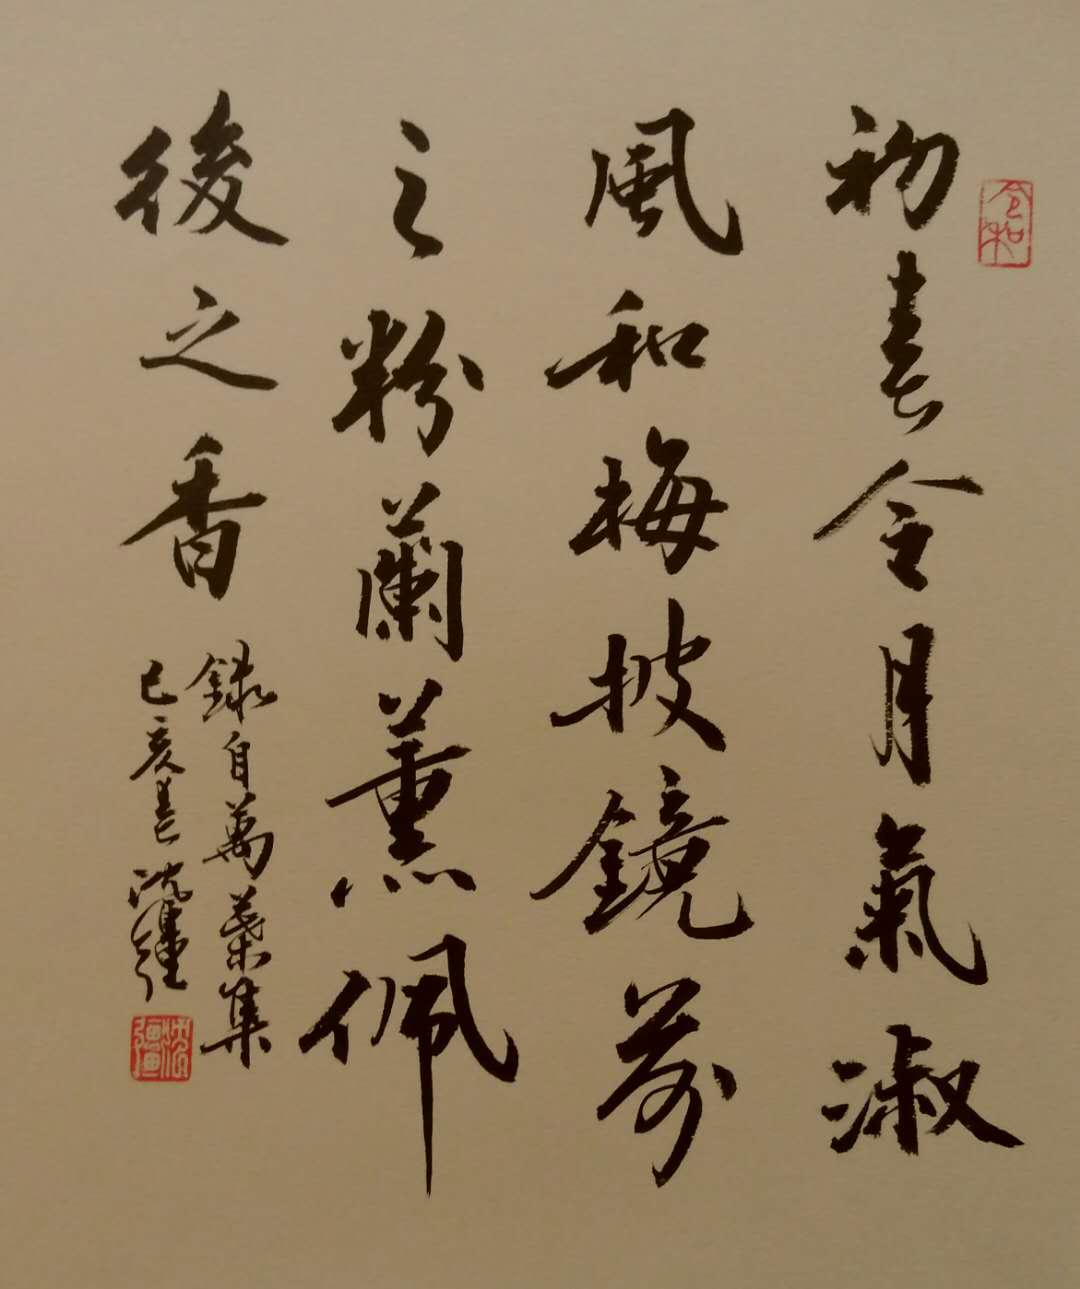 令和
初春令月氣淑
風和梅披鏡前
之粉蘭薰佩
後之香
錄自萬葉集
己亥春沈疆
沈疆